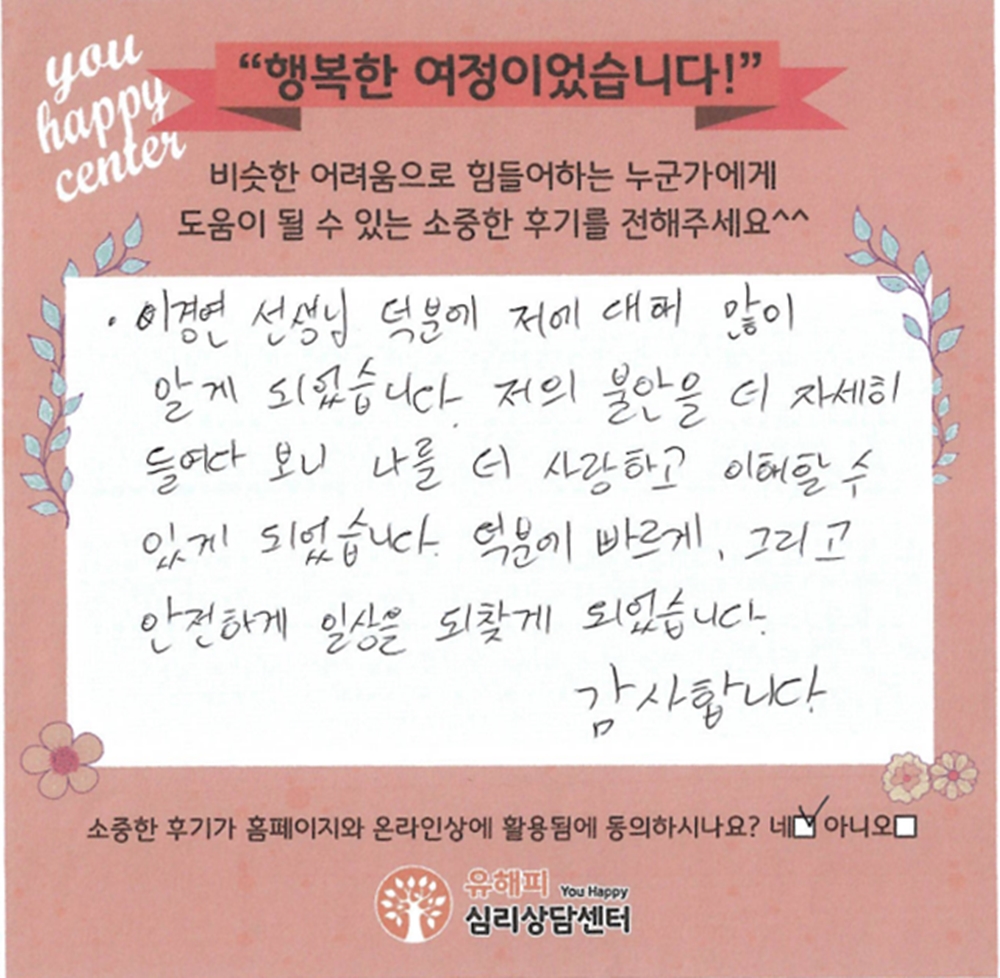 you
happy
center
“행복한 여정이었습니다!”
비슷한 어려움으로 힘들어하는 누군가에게
도움이 될 수 있는 소중한 후기를 전해주세요^^
· 이경연 선생님 덕분에 저에 대해 많이
알게 되었습니다. 저의 불안을 더 자세히
들여다 보니 나를 더 사랑하고 이해할 수
있게 되었습니다. 덕분에 빠르게, 그리고
안전하게 일상을 되찾게 되었습니다.
감사합니다
소중한 후기가 홈페이지와 온라인상에 활용됨에 동의하시나요? 네☑ 아니오☐
유해피 You Happy
심리상담센터